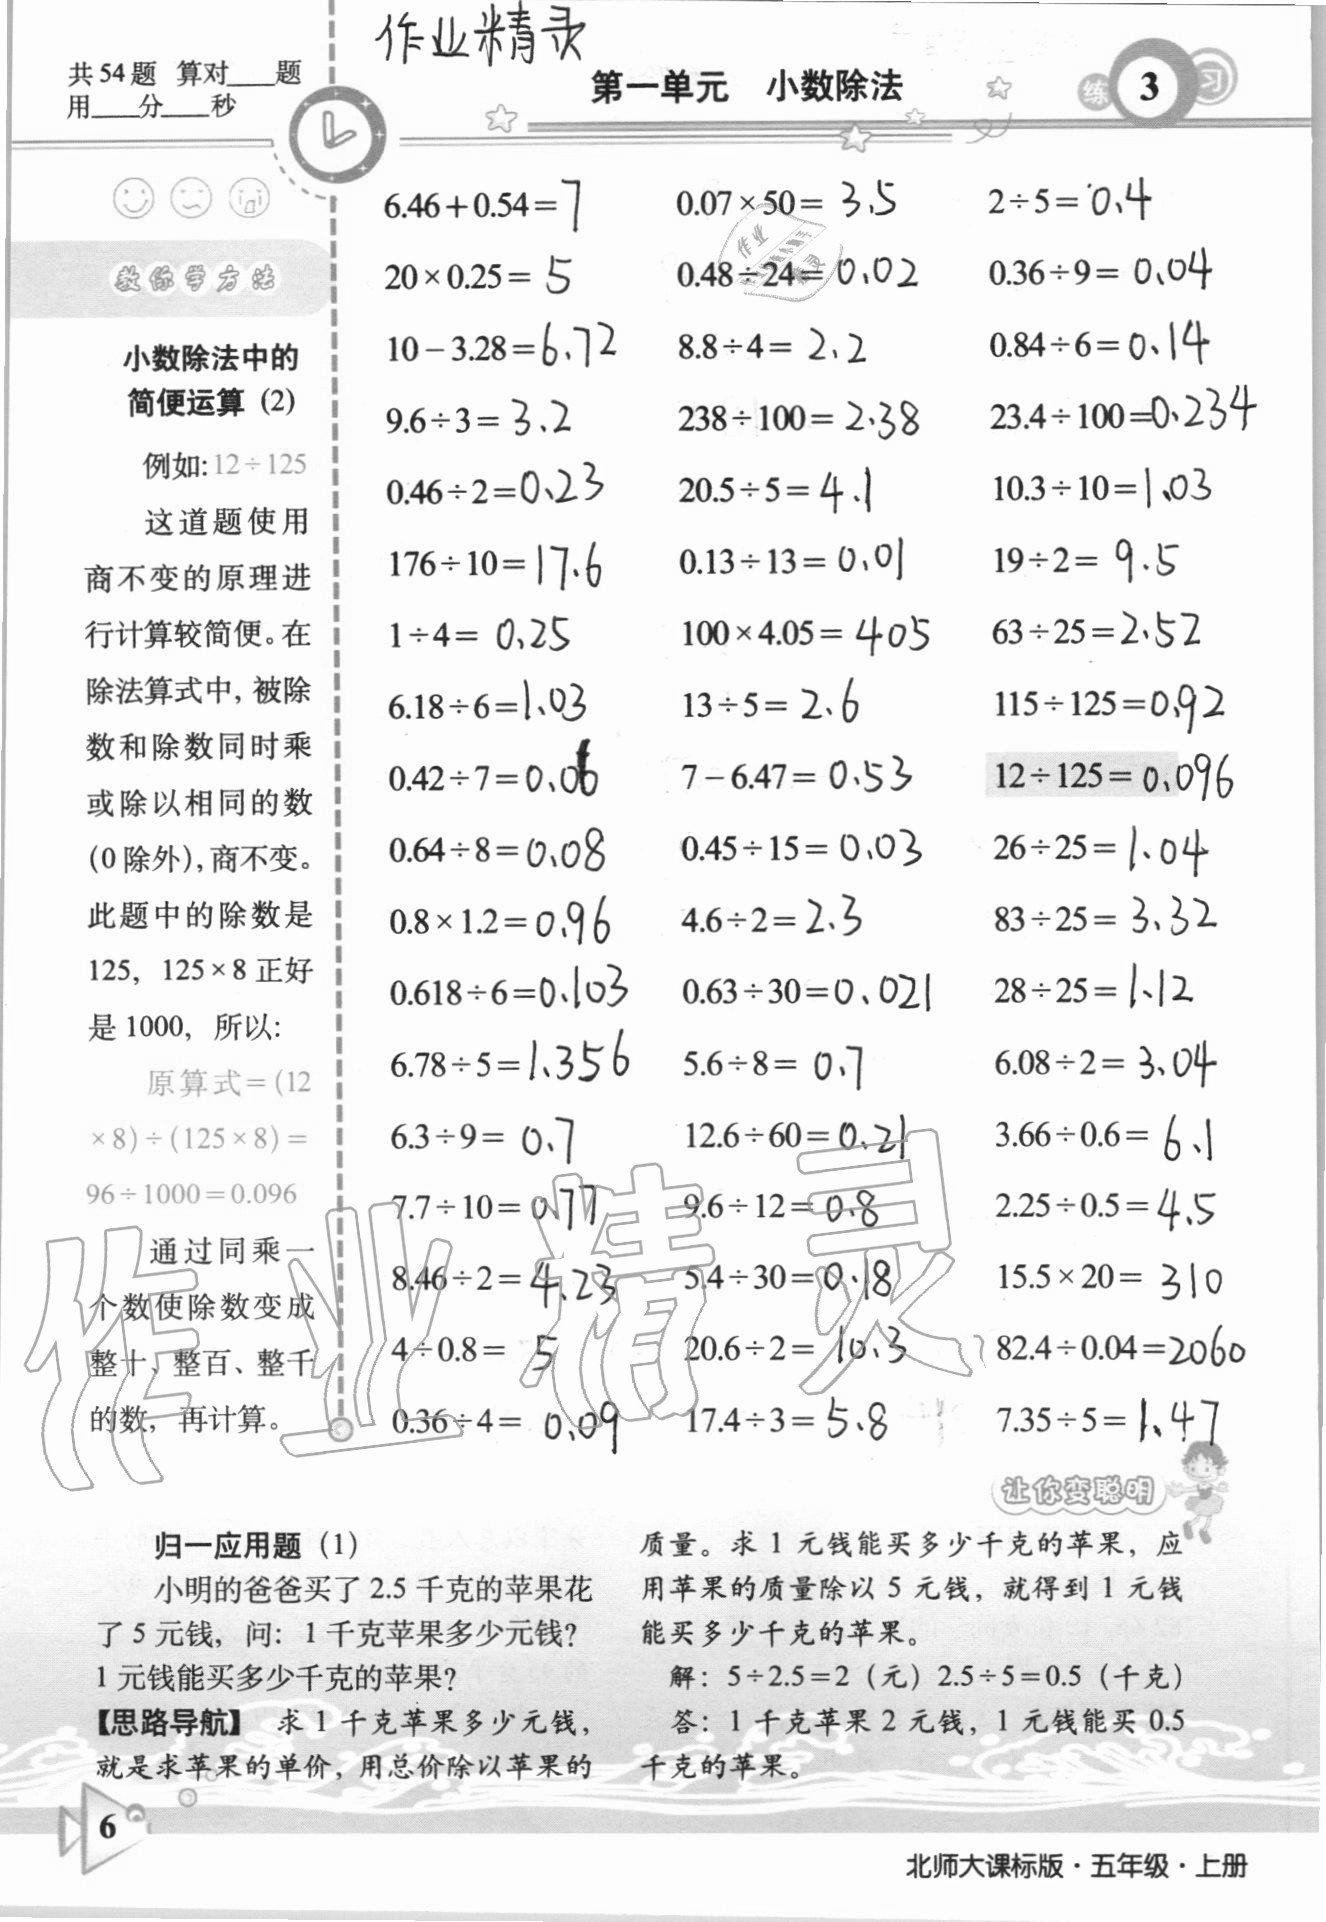 作业精灵
共54题 算对____题
用____分____秒
第一单元 小数除法
练 3 习
教你学方法
小数除法中的
简便运算 (2)
例如:12÷125
这道题使用
商不变的原理进
行计算较简便。在
除法算式中, 被除
数和除数同时乘
或除以相同的数
(0除外), 商不变。
此题中的除数是
125, 125×8正好
是1000, 所以:
原算式=(12
×8)÷(125×8)=
96÷1000=0.096
通过同乘一
个数使除数变成
整十、整百、整千
的数, 再计算。
6.46+0.54=7 0.07×50=3.5 2÷5=0.4
20×0.25=5 0.48÷24=0.02 0.36÷9=0.04
10-3.28=6.72 8.8÷4=2.2 0.84÷6=0.14
9.6÷3=3.2 238÷100=2.38 23.4÷100=0.234
0.46÷2=0.23 20.5÷5=4.1 10.3÷10=1.03
176÷10=17.6 0.13÷13=0.01 19÷2=9.5
1÷4=0.25 100×4.05=405 63÷25=2.52
6.18÷6=1.03 13÷5=2.6 115÷125=0.92
0.42÷7=0.06 7-6.47=0.53 12÷125=0.096
0.64÷8=0.08 0.45÷15=0.03 26÷25=1.04
0.8×1.2=0.96 4.6÷2=2.3 83÷25=3.32
0.618÷6=0.103 0.63÷30=0.021 28÷25=1.12
6.78÷5=1.356 5.6÷8=0.7 6.08÷2=3.04
6.3÷9=0.7 12.6÷60=0.21 3.66÷0.6=6.1
7.7÷10=0.77 9.6÷12=0.8 2.25÷0.5=4.5
8.46÷2=4.23 5.4÷30=0.18 15.5×20=310
4÷0.8=5 20.6÷2=10.3 82.4÷0.04=2060
0.36÷4=0.09 17.4÷3=5.8 7.35÷5=1.47
作业精灵
让你变聪明
归一应用题 (1)
小明的爸爸买了2.5千克的苹果花
了5元钱, 问: 1千克苹果多少元钱?
1元钱能买多少千克的苹果?
【思路导航】 求1千克苹果多少元钱,
就是求苹果的单价, 用总价除以苹果的
质量。求1元钱能买多少千克的苹果, 应
用苹果的质量除以5元钱, 就得到1元钱
能买多少千克的苹果。
解: 5÷2.5=2 (元) 2.5÷5=0.5 (千克)
答: 1千克苹果2元钱, 1元钱能买0.5
千克的苹果。
6
北师大课标版·五年级·上册